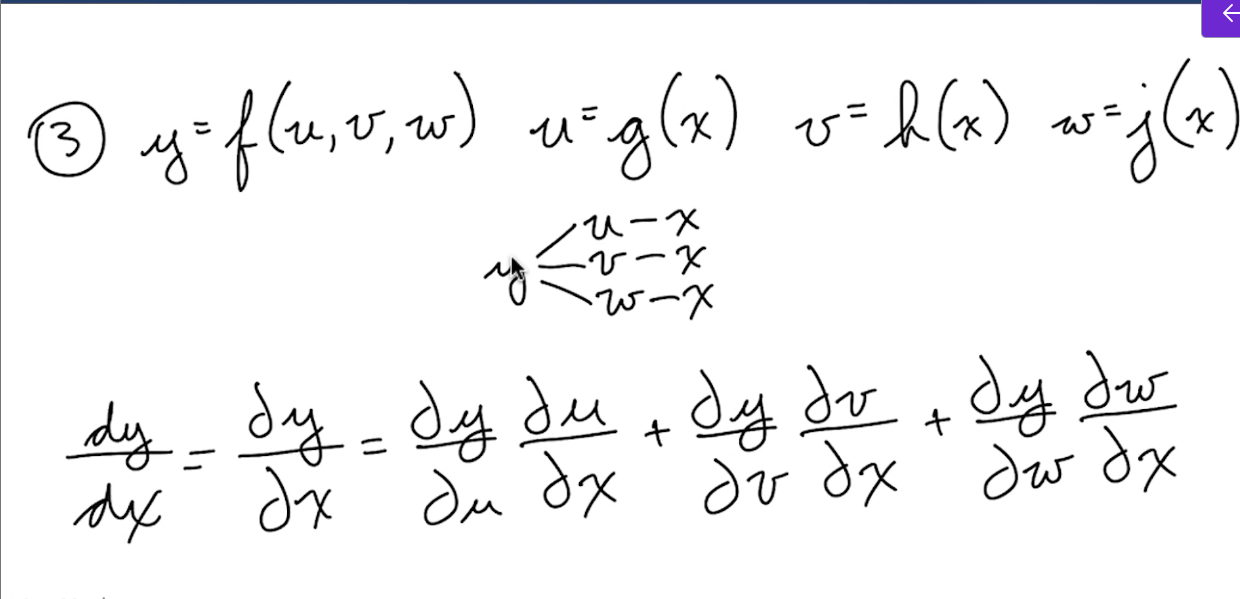 ③ y=f(u,v,w) u=g(x) v=h(x) w=j(x)
u-x
y v-x
w-x
dy/dx = ∂y/∂x = ∂y/∂u ∂u/∂x + ∂y/∂v ∂v/∂x + ∂y/∂w ∂w/∂x